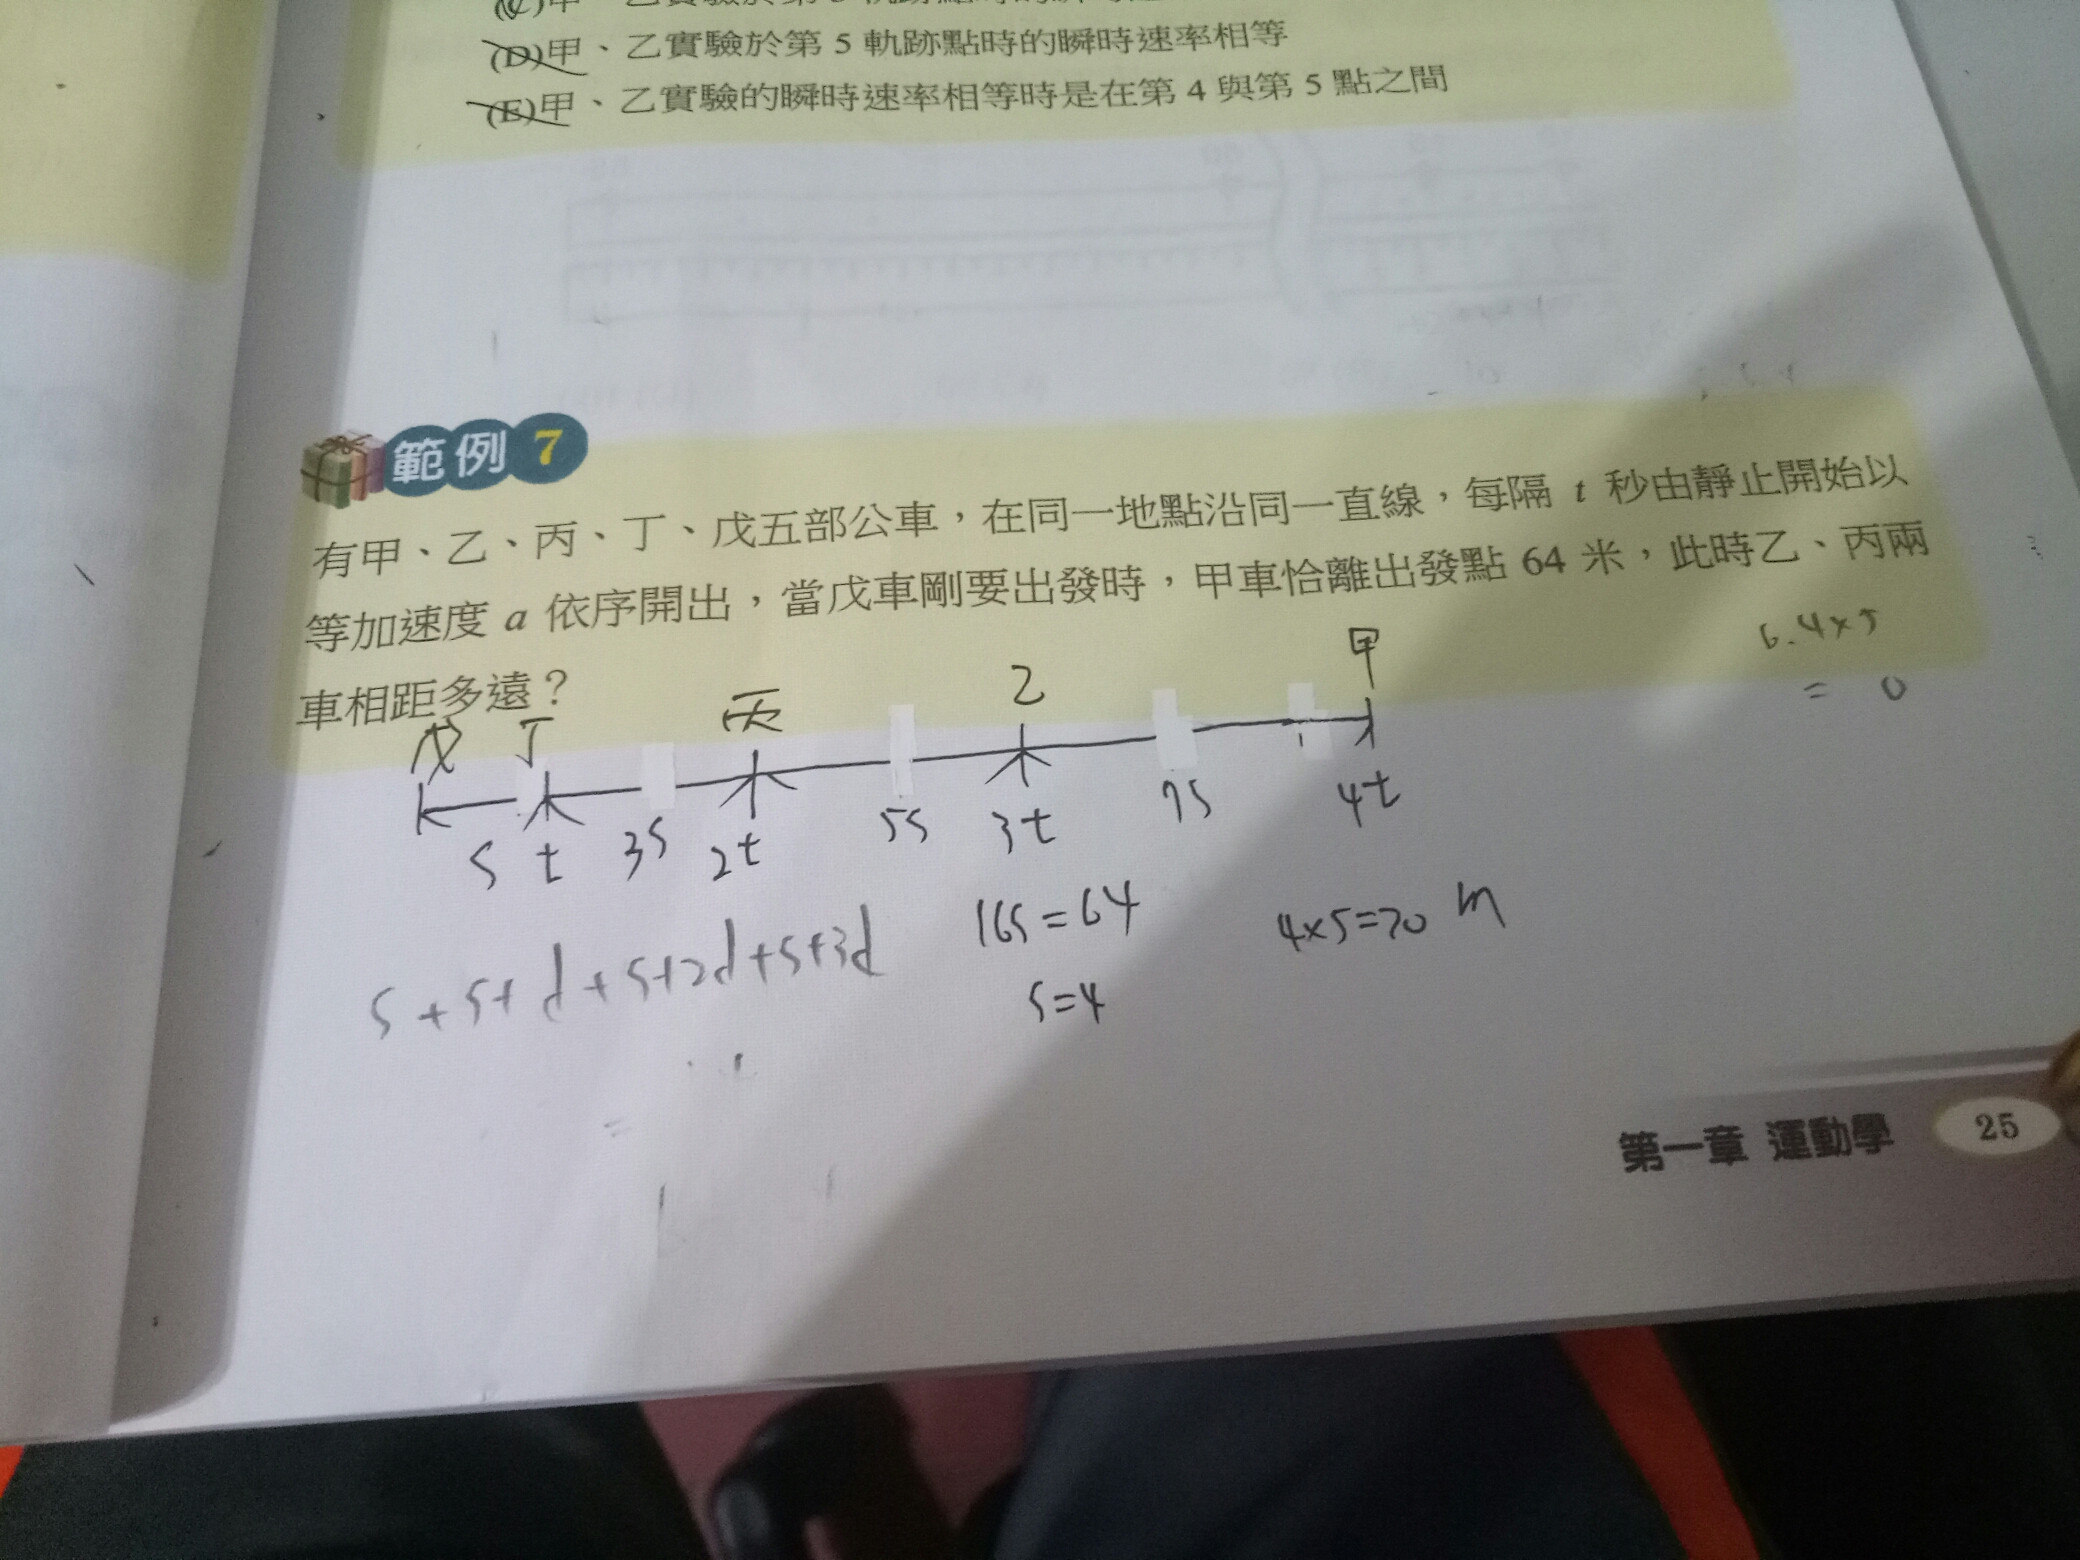 (D)甲、乙實驗於第 5 軌跡點時的瞬時速率相等
(E)甲、乙實驗的瞬時速率相等時是在第 4 與第 5 點之間
範例 7
有甲、乙、丙、丁、戊五部公車，在同一地點沿同一直線，每隔 t 秒由靜止開始以
等加速度 a 依序開出，當戊車剛要出發時，甲車恰離出發點 64 米，此時乙、丙兩
車相距多遠？
6.4×5
= 0
戊 丁 丙 乙 甲
S t 3S 2t 5S 3t 7S 4t
S+S+d+S+2d+S+3d
16S=64
S=4
4×5=20 m
第一章 運動學 25